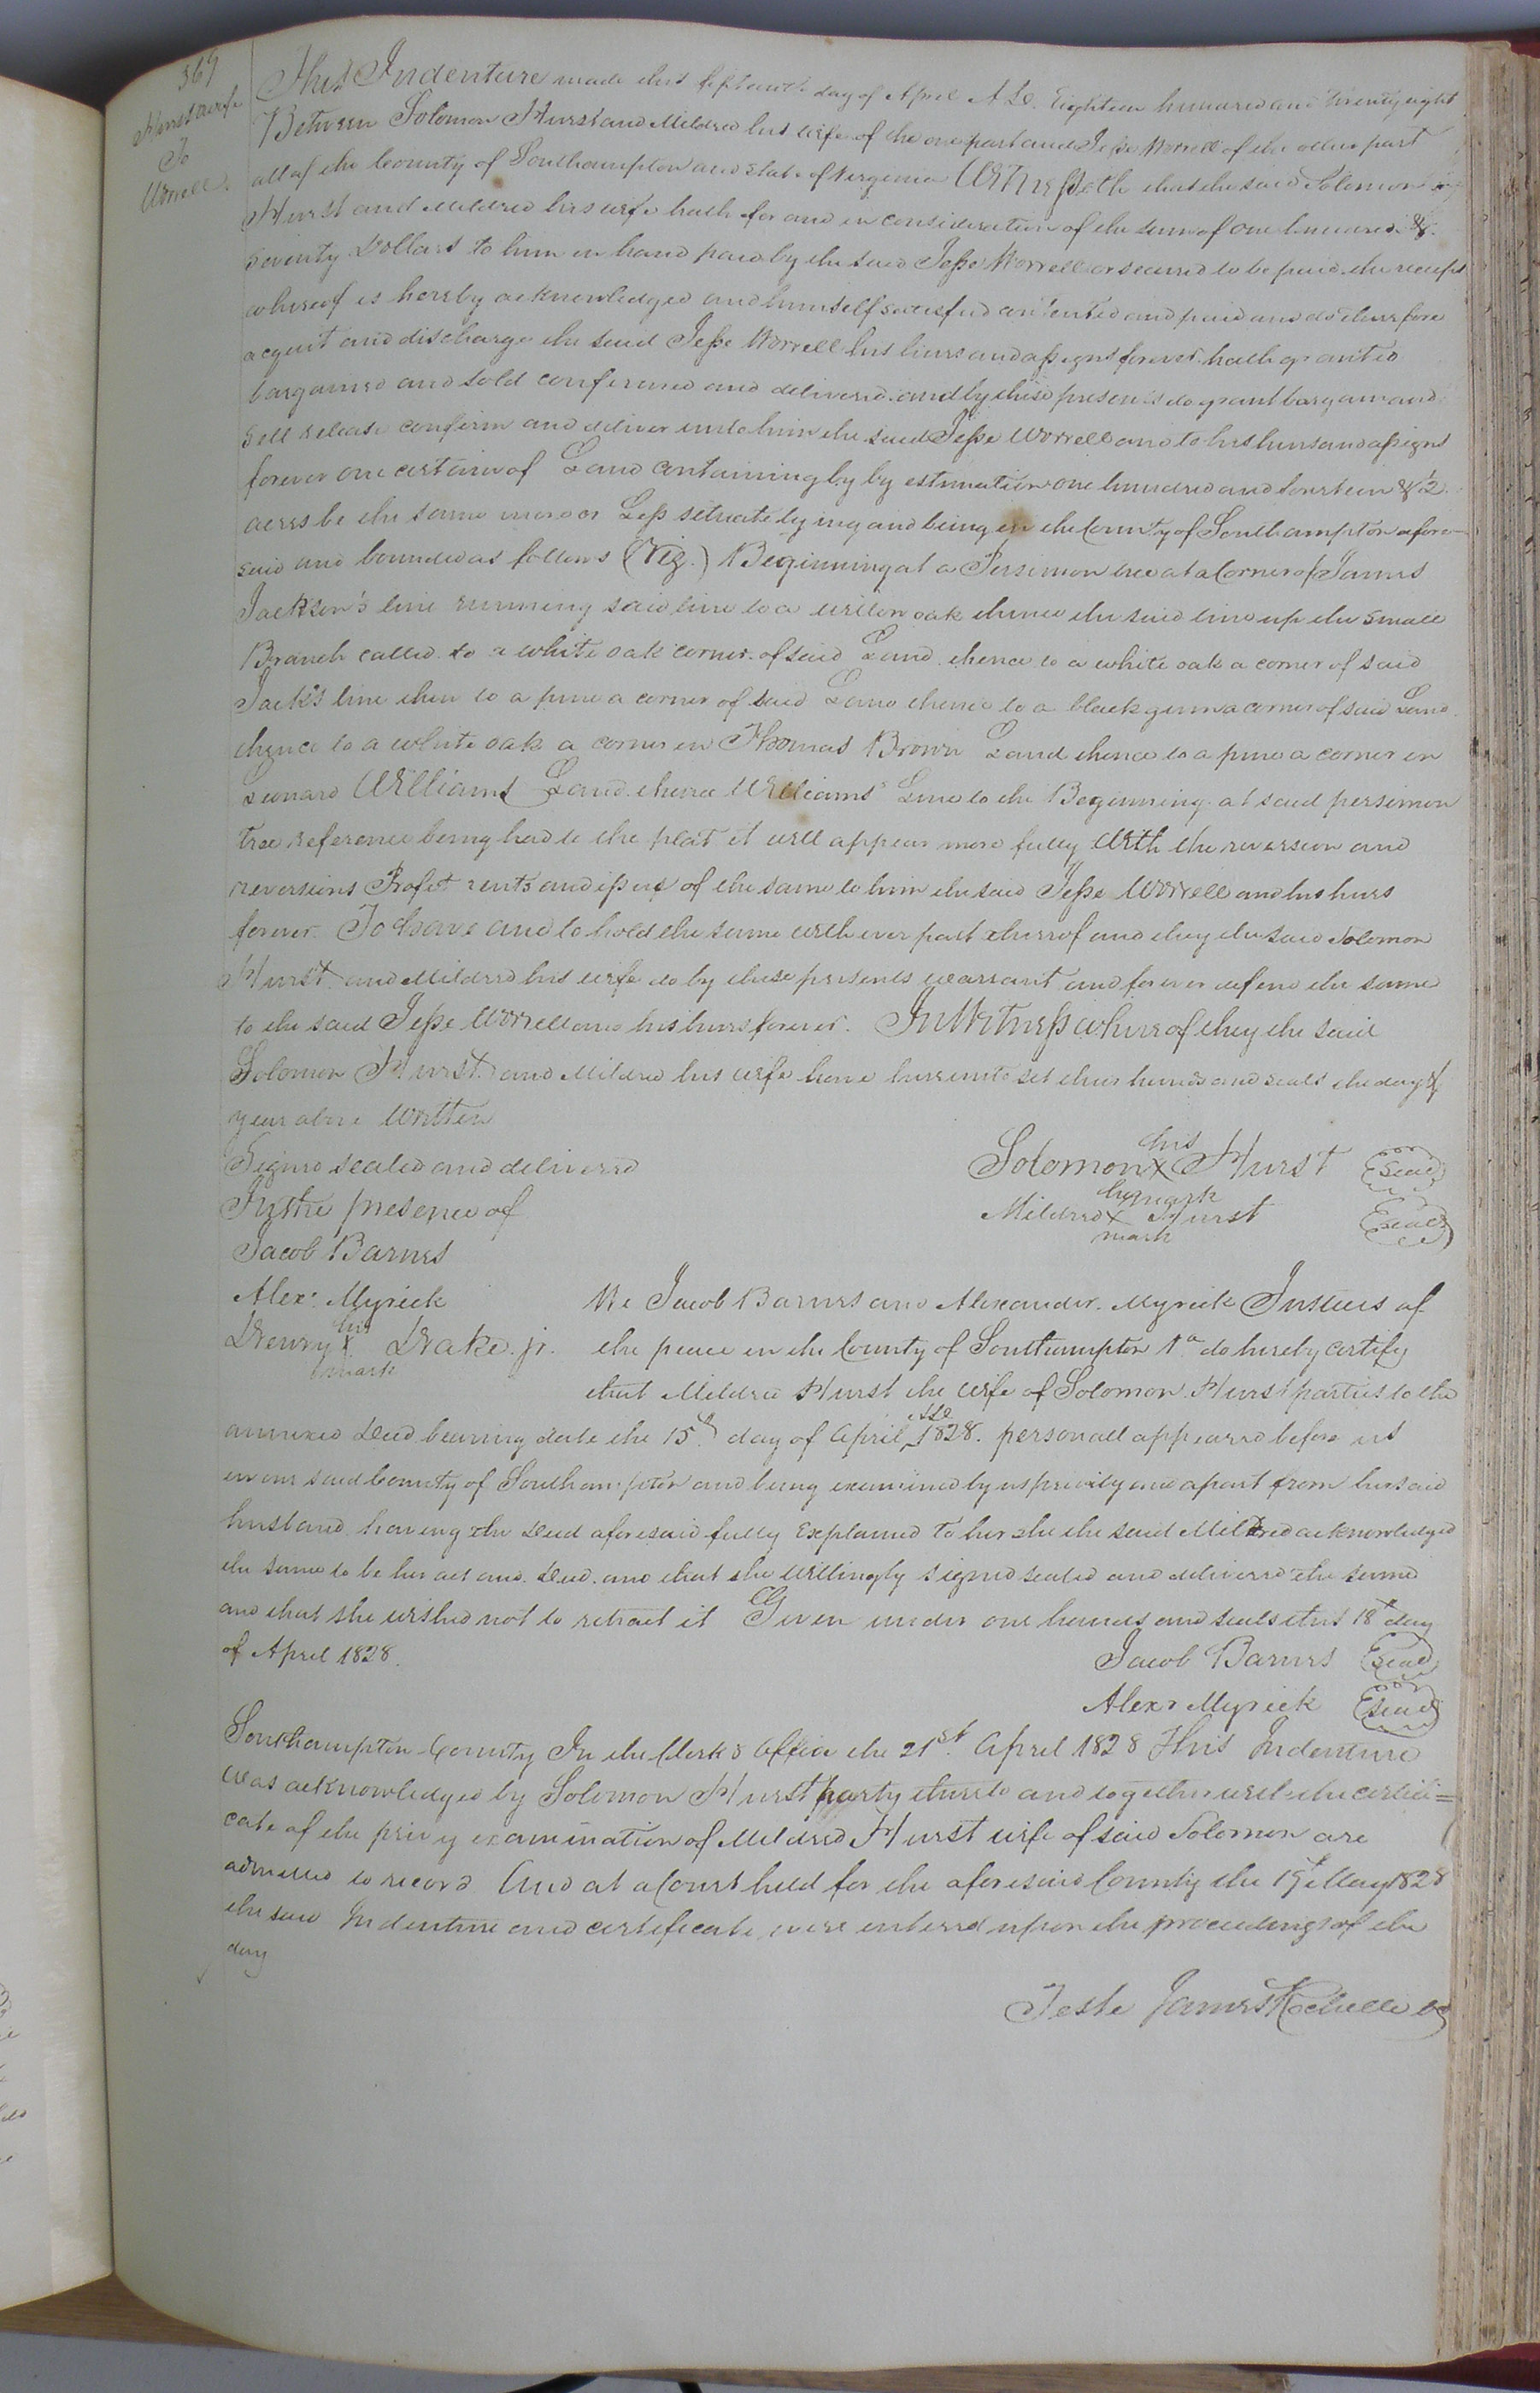 369
Hurst & wife
To
Worrell
This Indenture made this fifteenth day of April A.D. Eighteen hundred and twenty eight
Between Solomon Hurst and Mildred his wife of the one part and Jesse Worrell of the other part
all of the County of Southampton and State of Virginia Witnesseth that the said Solomon
Hurst and Mildred his wife hath for and in consideration of the sum of one hundred &
seventy Dollars to him in hand paid by the said Jesse Worrell or secured to be paid the receipt
whereof is hereby acknowledged and himself satisfied contented and paid and do therefore
acquit and discharge the said Jesse Worrell his hiers and assigns forever hath granted
bargained and sold confirmed and delivered and by these presents do grant bargain and
sell release confirm and deliver unto him the said Jesse Worrell and to his hiers and assigns
forever one certain of Land containing by by estimation one hundred and fourteen & 1/2
acres be the same more or Less situate lying and being in the County of Southampton afore-
said and bounded as follows (Viz.) Beginning at a Persimon tree at a Corner of James
Jackson's line running said line to a willow oak thence the said line up the small
Branch called to a white oak corner of said Land thence to a white oak a corner of said
Jack's line then to a pine a corner of said Land thence to a black gum a corner of said Land
thence to a white oak a corner in Thomas Brown Land thence to a pine a corner in
Leonard Williams Land thence Williams' Line to the Beginning at said persimon
tree reference being had to the plat it will appear more fully With the reversion and
reversions Profit rents and issues of the same to him the said Jesse Worrell and his hiers
forever To have and to hold the same with ever part thereof and they the said Solomon
Hurst and Mildred his wife do by these presents warrant and forever defend the same
to the said Jesse Worrell and his hiers forever. In Witness whereof they the said
Solomon Hurst and Mildred his wife have hereunto set their hands and seals the day &
year above Written
Signed sealed and delivered
In the presence of
Jacob Barnes
Alexr. Myrick
his
Drewry X Drake. jr.
mark
his
Solomon X Hurst Seal
mark
her
Mildred X Hurst Seal
mark
We Jacob Barnes and Alexander Myrick Justices of
the peace in the County of Southampton Va do hereby certify
that Mildred Hurst the wife of Solomon Hurst parties to the
annexed Deed bearing date the 15th day of April AD 1828. personall appeared before us
in our said County of Southampton and being examined by us privily and apart from her said
husband having the Deed aforesaid fully Explained to her she the said Mildred acknowledged
the same to be her act and Deed and that she willingly signed sealed and delivered the same
and that she wished not to retract it Given under our hands and seals this 18th day
of April 1828.
Jacob Barnes Seal
Alexr Myrick Seal
Southampton County In the Clerk's Office the 21st. April 1828 This Indenture
Was acknowledged by Solomon Hurst party thereto and together with the certifi=
cate of the privy examination of Mildred Hurst wife of said Solomon are
admitted to record And at a Court held for the aforesaid County the 19th May 1828
the said Indenture and certificate were entered upon the proceedings of the
day
Teste James Rochelle